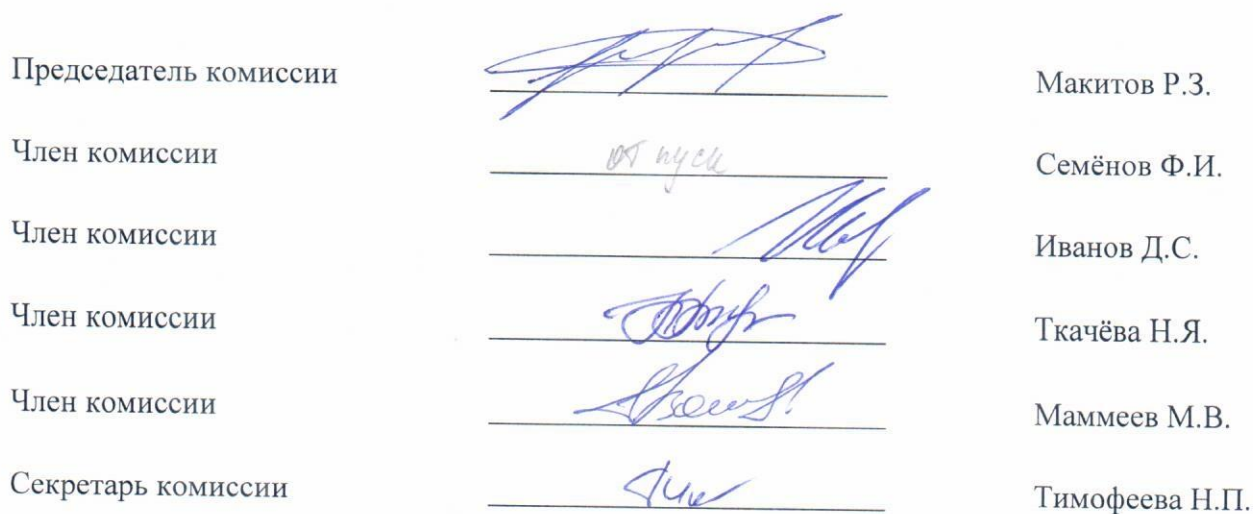 Председатель комиссии Макитов Р.З.
Член комиссии отпуск Семёнов Ф.И.
Член комиссии Иванов Д.С.
Член комиссии Ткачёва Н.Я.
Член комиссии Маммеев М.В.
Секретарь комиссии Тимофеева Н.П.